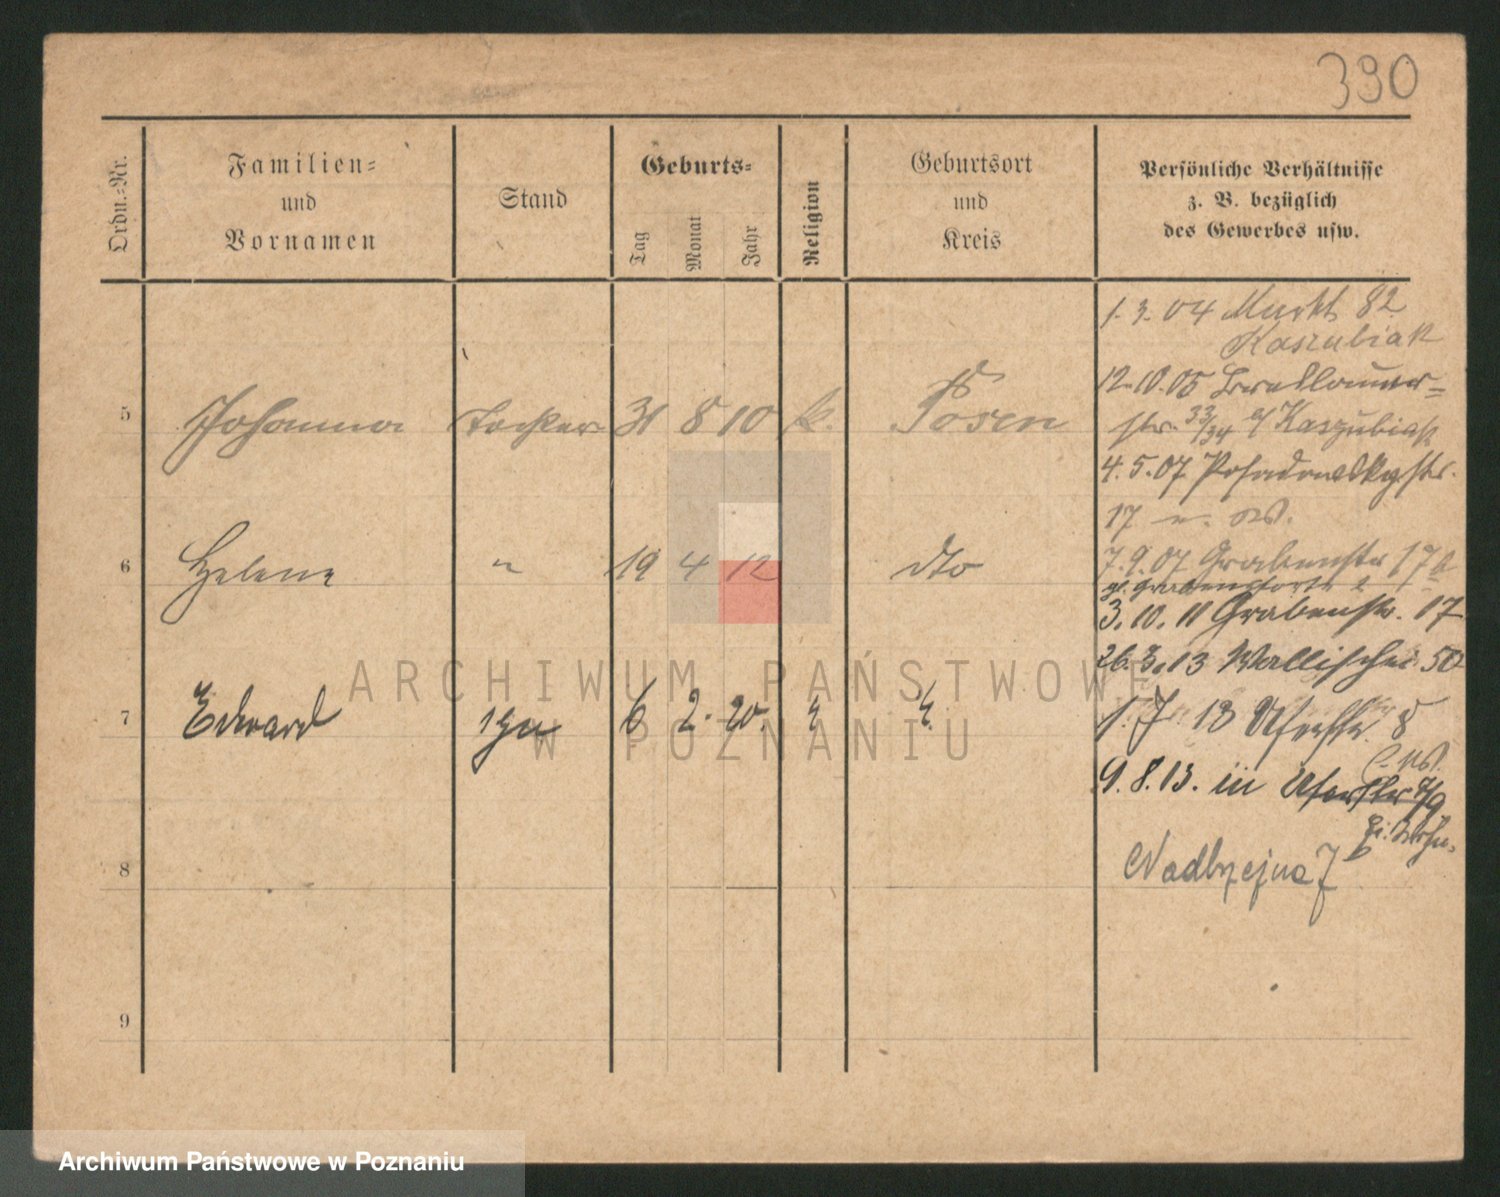 390
Ordn.-Nr.
Familien-
und
Vornamen
Stand
Geburts-
Tag
Monat
Jahr
Religion
Geburtsort
und
Kreis
Persönliche Verhältnisse
z. B. bezüglich
des Gewerbes usw.
1. 3. 04 Markt 82
Kaszubiak
12.10.05 Breslauer-
5 Johanna Tochter 31 8 10 k. Posen
str. 33/34 Kaszubiak
4. 5. 07 Posadowskystr.
17
6 Helene " 19 4 12 dto
7. 9. 07 Grabenstr 17
3. 10. 11 Grabenstr. 17
26. 3. 13 Wallischei 50
7 Edward syn 6 2. 20.
1. 7. 13 Uferstr. 8
9. 8. 13. in Uferstr
8 Nadbrzejna 7
9
ARCHIWUM PAŃSTWOWE
W POZNANIU
Archiwum Państwowe w Poznaniu